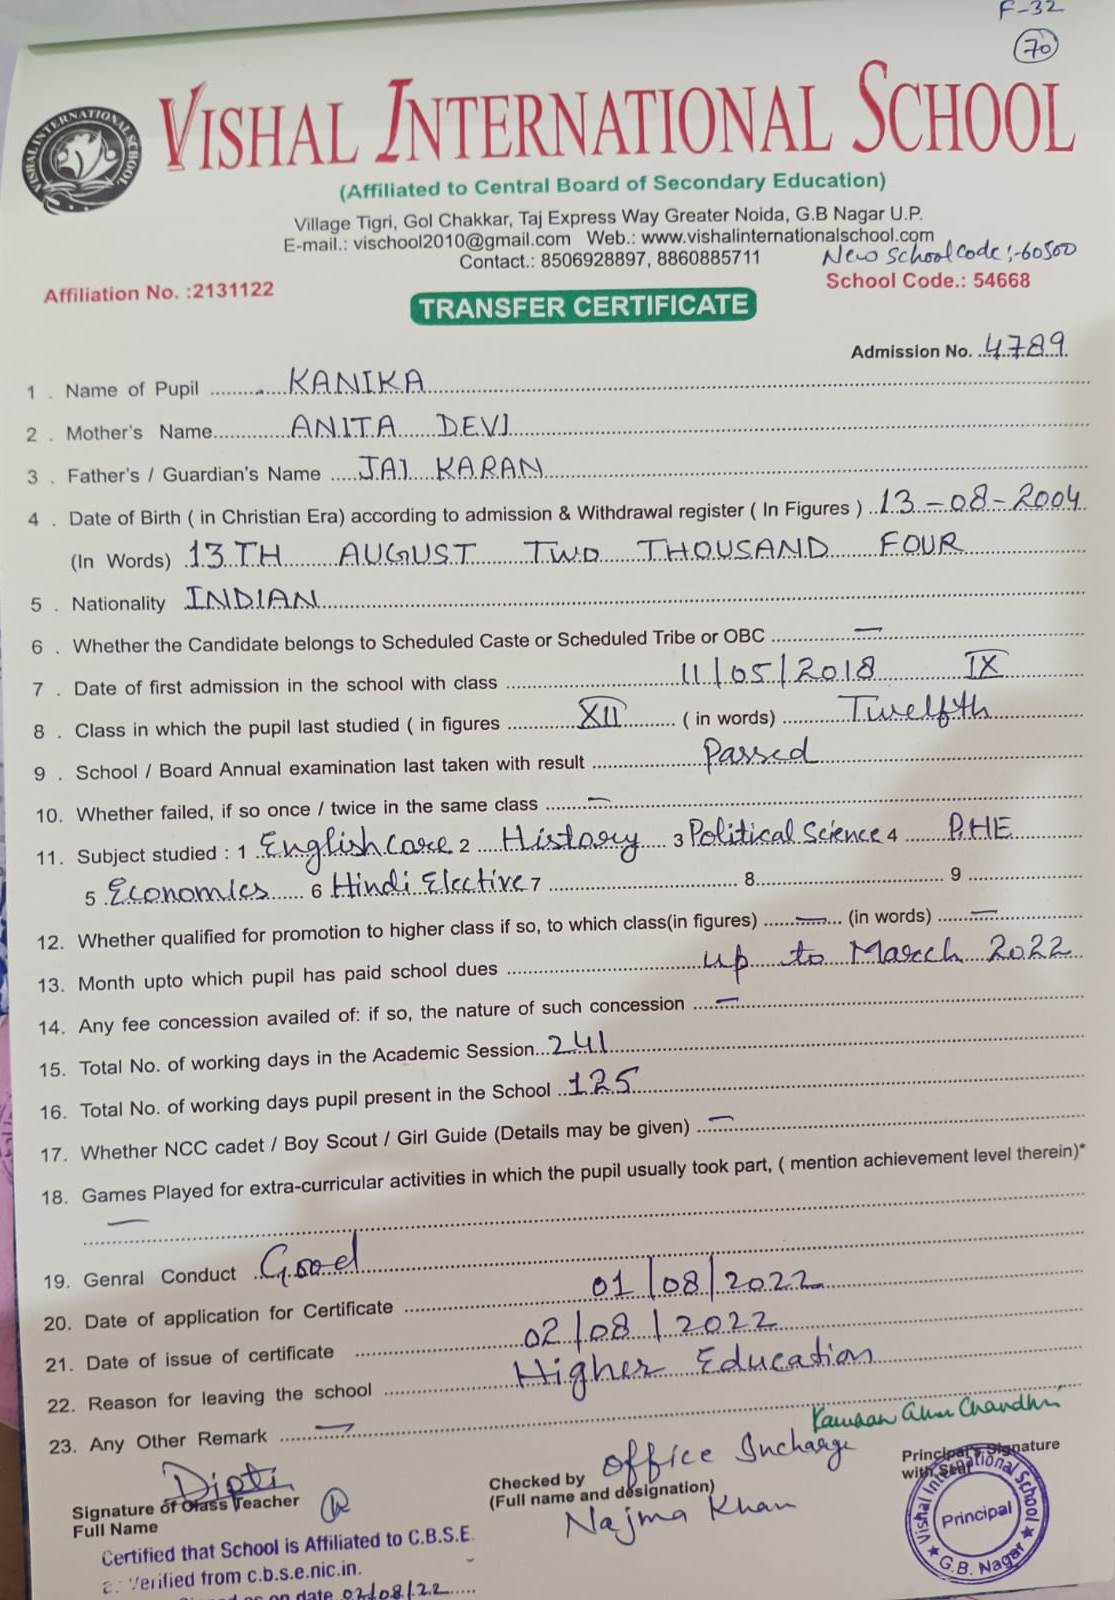 F-32
70
VISHAL INTERNATIONAL SCHOOL
VISHAL INTERNATIONAL SCHOOL
(Affiliated to Central Board of Secondary Education)
Village Tigri, Gol Chakkar, Taj Express Way Greater Noida, G.B Nagar U.P.
E-mail.: vischool2010@gmail.com Web.: www.vishalinternationalschool.com
Contact.: 8506928897, 8860885711 New School Code :-60500
Affiliation No. :2131122 School Code.: 54668
TRANSFER CERTIFICATE
Admission No. 4789
1 . Name of Pupil KANIKA
2 . Mother's Name ANITA DEVI
3 . Father's / Guardian's Name JAI KARAN
4 . Date of Birth ( in Christian Era) according to admission & Withdrawal register ( In Figures ) 13-08-2004
(In Words) 13TH AUGUST TWO THOUSAND FOUR
5 . Nationality INDIAN
6 . Whether the Candidate belongs to Scheduled Caste or Scheduled Tribe or OBC —
7 . Date of first admission in the school with class 11/05/2018 IX
8 . Class in which the pupil last studied ( in figures XII ( in words) Twelfth
9 . School / Board Annual examination last taken with result Passed
10. Whether failed, if so once / twice in the same class —
11. Subject studied : 1 English Core 2 History 3 Political Science 4 P.HE
5 Economics 6 Hindi Elective 7 8 9
12. Whether qualified for promotion to higher class if so, to which class(in figures) — (in words) —
13. Month upto which pupil has paid school dues up to March 2022
14. Any fee concession availed of: if so, the nature of such concession —
15. Total No. of working days in the Academic Session 241
16. Total No. of working days pupil present in the School 125
17. Whether NCC cadet / Boy Scout / Girl Guide (Details may be given) —
18. Games Played for extra-curricular activities in which the pupil usually took part, ( mention achievement level therein)*
—
19. Genral Conduct Good
20. Date of application for Certificate 01/08/2022
21. Date of issue of certificate 02/08/2022
22. Reason for leaving the school Higher Education
23. Any Other Remark —
Dipti
Signature of Class Teacher
Full Name
Checked by Office Incharge
(Full name and designation)
Najma Khan
Principal's Signature
with Seal
Vishal International School
Principal
G.B. Nagar
Certified that School is Affiliated to C.B.S.E.
Verified from c.b.s.e.nic.in.
on date 02/08/22